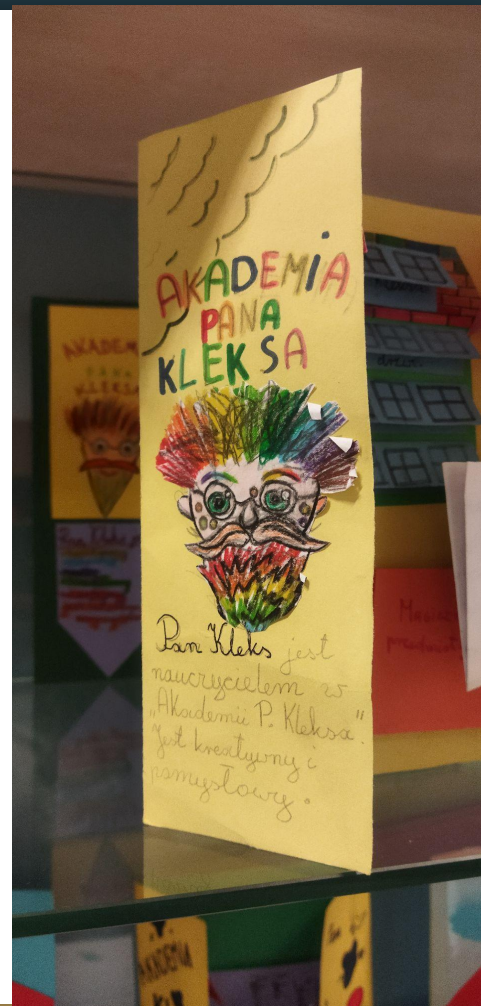 AKADEMIA
PANA
KLEKSA
Pan Kleks jest
nauczycielem w
„Akademii P. Kleksa".
Jest kreatywny i
pomysłowy.
AKADEM
PANA
KLEKSA
Pan Kleks
AKADEMIA